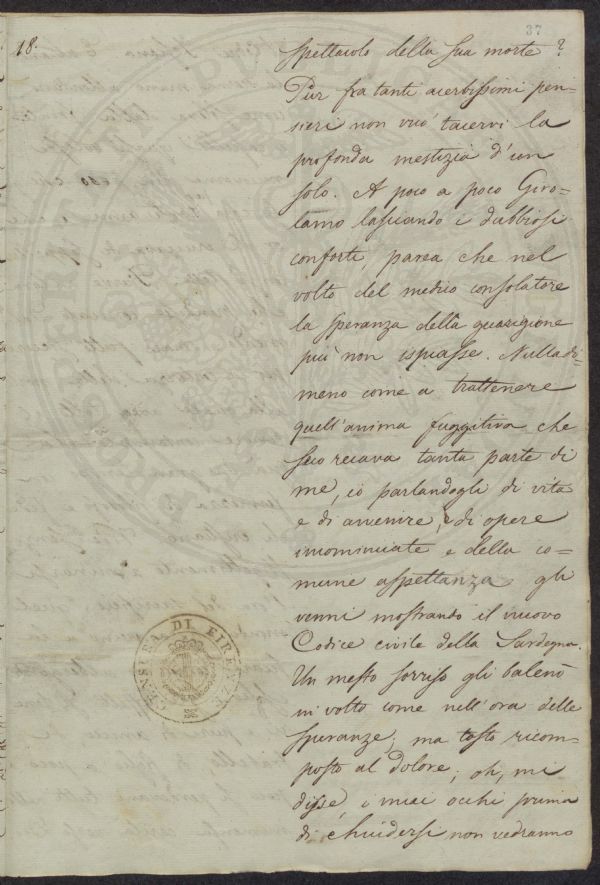 37
18.
spettacolo della sua morte?
Pur fra tanti acerbissimi pen-
sieri non vuo' tacervi la
profonda mestizia d'un
solo. A poco a poco Giro-
lamo lasciando i dubbiosi
conforti, parea che nel
volto del medico consolatore
la speranza della guarigione
più non ispiasse. Nulladi-
meno come a trattenere
quell'anima fuggitiva che
seco recava tanta parte di
me, io parlandogli di vita
e di avvenire, e di opere
incominciate e della co-
mune aspettanza gli
venni mostrando il nuovo
Codice civile della Sardegna.
Un mesto sorriso gli balenò
in volto come nell'ora delle
speranze; ma tosto ricom-
posto al dolore; oh, mi
disse, i miei occhi prima
di chiudersi non vedranno
CENSURA DI FIRENZE